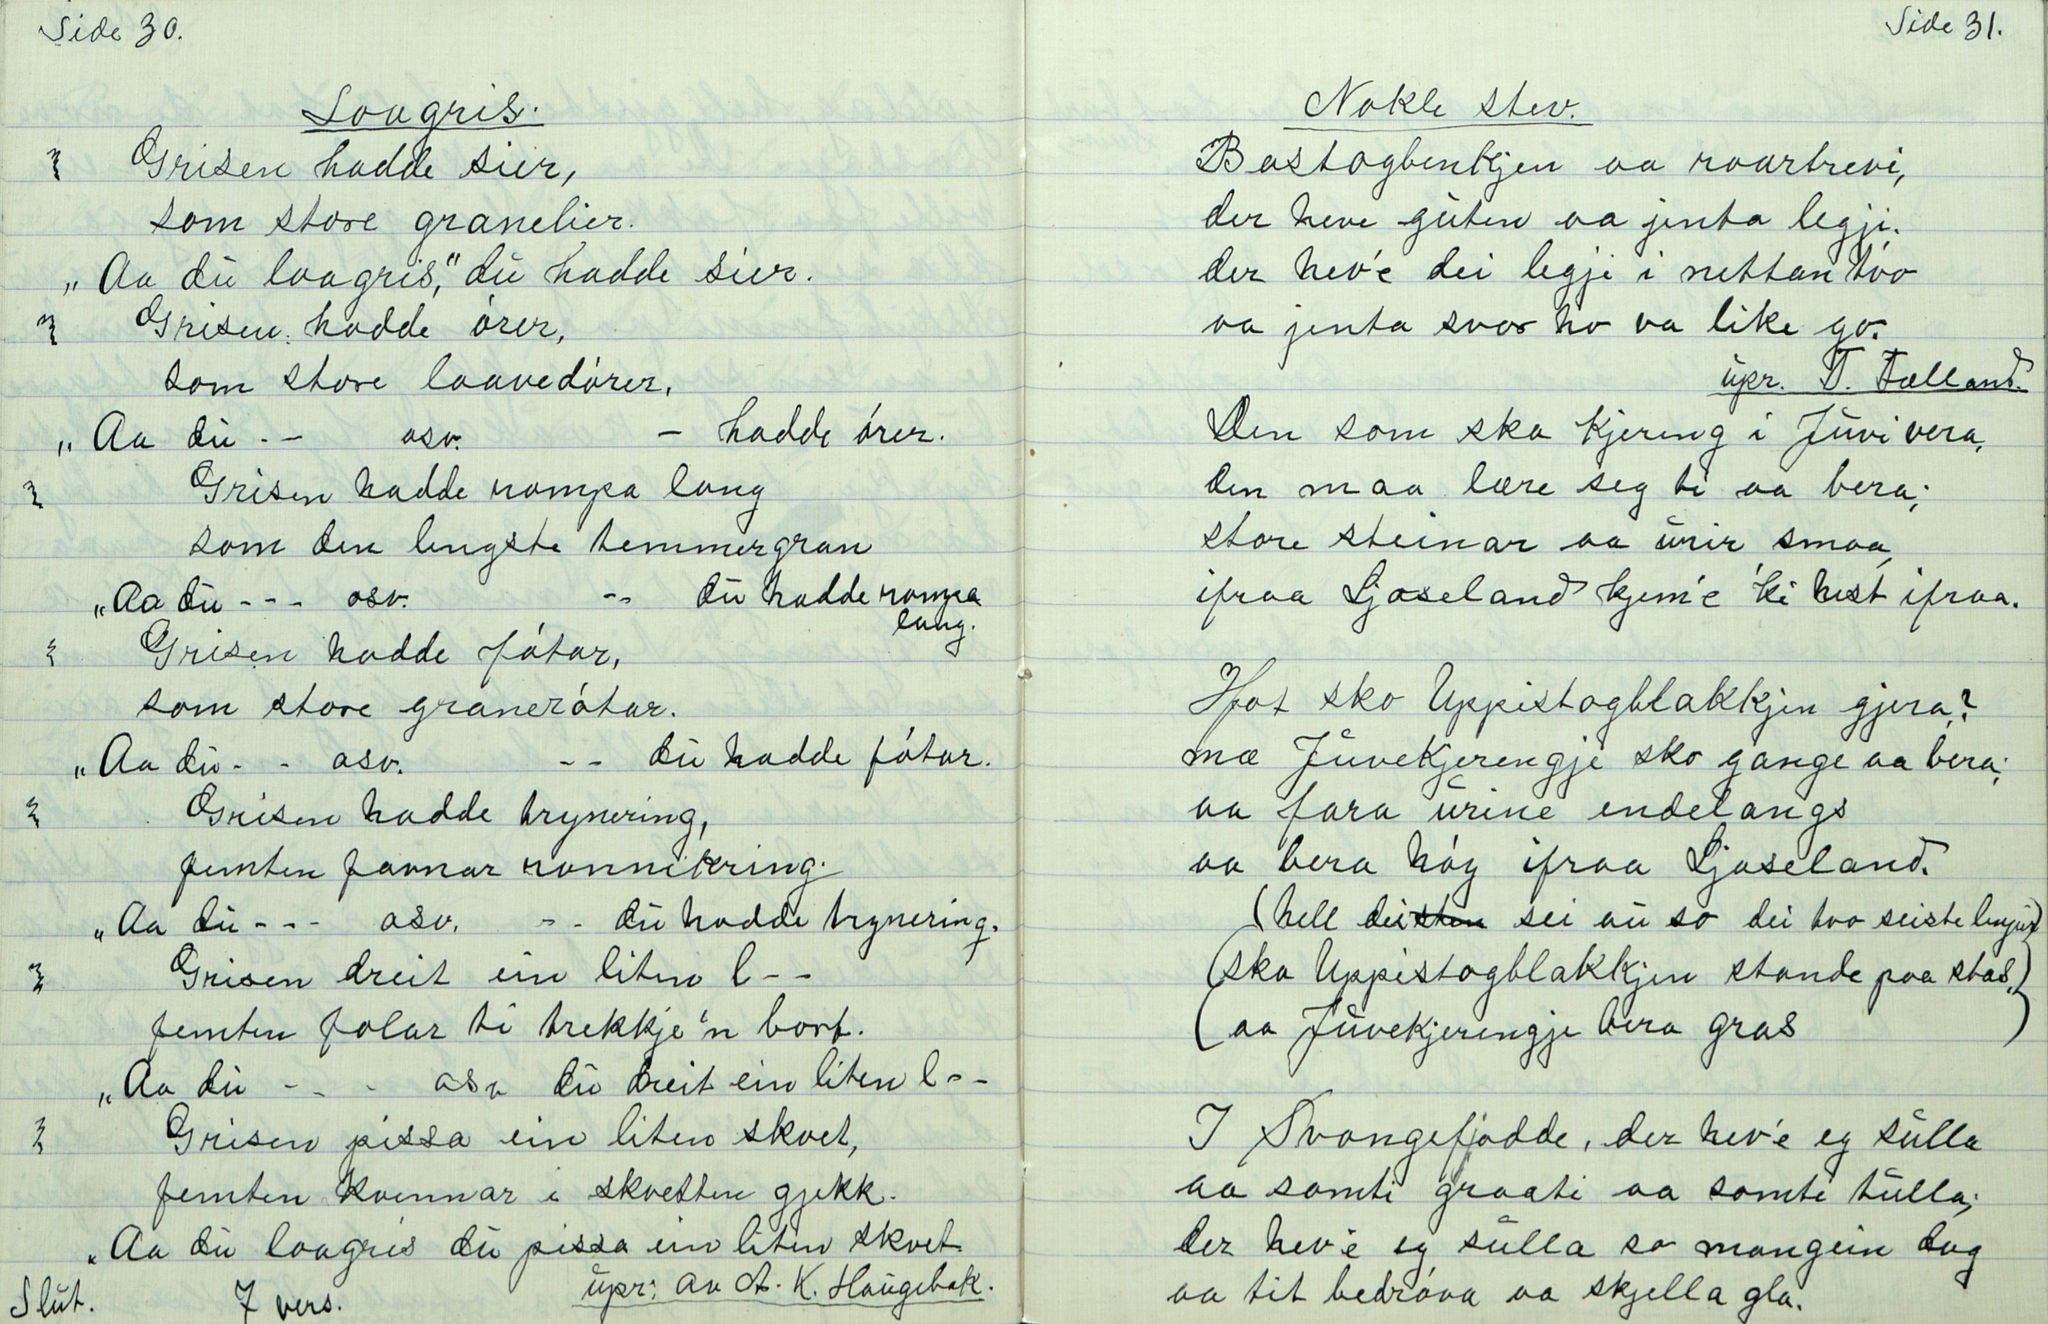 Side 30.
Loagris.
Grisen hadde sier,
som store granelier.
„Aa dŭ loagris," dŭ hadde sier.
Grisen hadde órer,
som store laavedórer.
„Aa dŭ - - osv. - hadde órer.
Grisen hadde rompa long
som den lengste temmergran
„Aa dŭ - - - osv. -- dŭ hadde rompa
long.
Grisen hadde fótar,
som store granerótar.
„Aa dŭ - - osv. -- dŭ hadde fótar.
Grisen hadde trynering,
femten favnar runnikring.
„Aa dŭ - - - osv. - - dŭ hadde trynering.
Grisen dreit ein liten l--
femten folar ti trekkje'n bort.
„Aa dŭ - - - osv dŭ dreit ein liten l--
Grisen pissa ein liten skvet,
femten kvennar i skvetten gjekk.
„Aa dŭ loagris dŭ pissa ein liten skvet.
Slŭt. 7 vers. ŭpr: av A. K. Haŭgebak.
Side 31.
Nokle stev.
Bastogbenkjen aa roartrevi,
der heve gŭten aa jenta legji.
der hev'e dei legji i nettan tvo
aa jenta svor ho va like go.
ŭpr. T. Fælland.
Den som ska kjering i Jŭvi vera,
den maa lære seg ti aa bera;
store steinar aa ŭrir smaa,
ifraa Ljoseland kjem'e 'ki hest ifraa.
Hot sko Uppistogblakkjen gjera?
mæ Jŭvekjerengje sko gange aa bera;
aa fara ŭrine endelangs
aa bera hóy ifraa Ljoseland.
(hell dei sei aŭ so dei tvo seiste linjŭr)
(ska Uppistogblakkjen stande paa stas,)
(aa Jŭvekjerengje bera gras)
I Svangefjodde, der hev'e eg sŭlla
aa somti graati aa somti tŭlla;
der hev'e eg sŭlla so mangein dag
aa tit bedróva aa skjella gla.